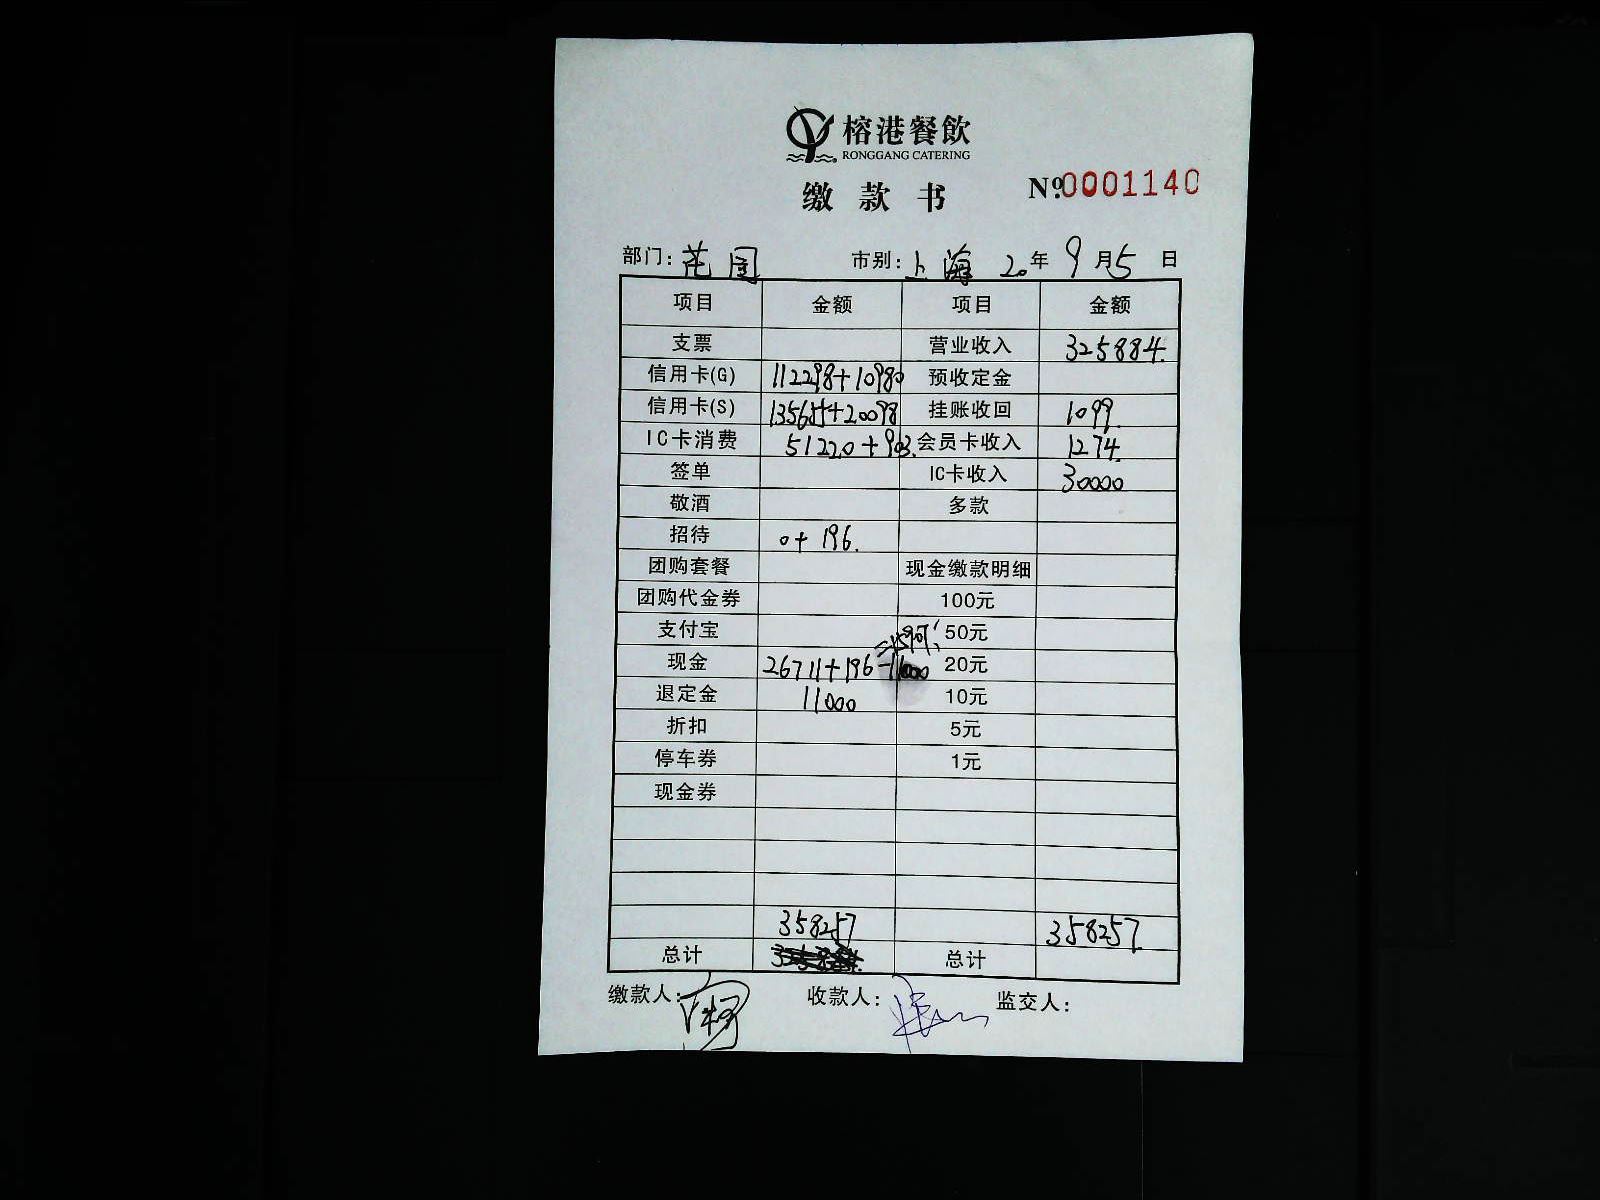 榕港餐飲
RONGGANG CATERING
缴款书 №0001140
部门: 花园 市别: 上海 20年 9月5日
项目 金额 项目 金额
支票 营业收入 325884.
信用卡(G) 112298+10980 预收定金
信用卡(S) 135655+20098 挂账收回 1099.
IC卡消费 51220+903. 会员卡收入 1274.
签单 IC卡收入 30000
敬酒 多款
招待 0+196.
团购套餐 现金缴款明细
团购代金券 100元
支付宝 =15907 50元
现金 26711+196-11000 20元
退定金 11000 10元
折扣 5元
停车券 1元
现金券
358257 358257
总计 总计
缴款人: 收款人: 监交人: